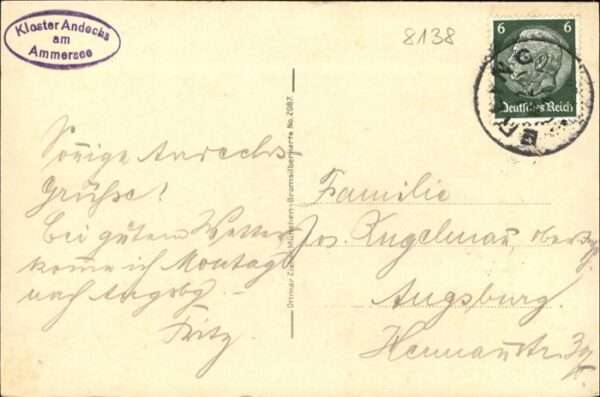 Kloster Andechs
am
Ammersee
8138
6 6
Deutsches Reich
Sonnige Andechs
Grüße!
Bei gutem Wetter
komme ich Montag
nach Augsbg. –
Fritz.
Ottmar Zieher, München - Bromsilberkarte No. 2987.
Familie
Jos. Engelmann,
Augsburg.
Hermanstr.